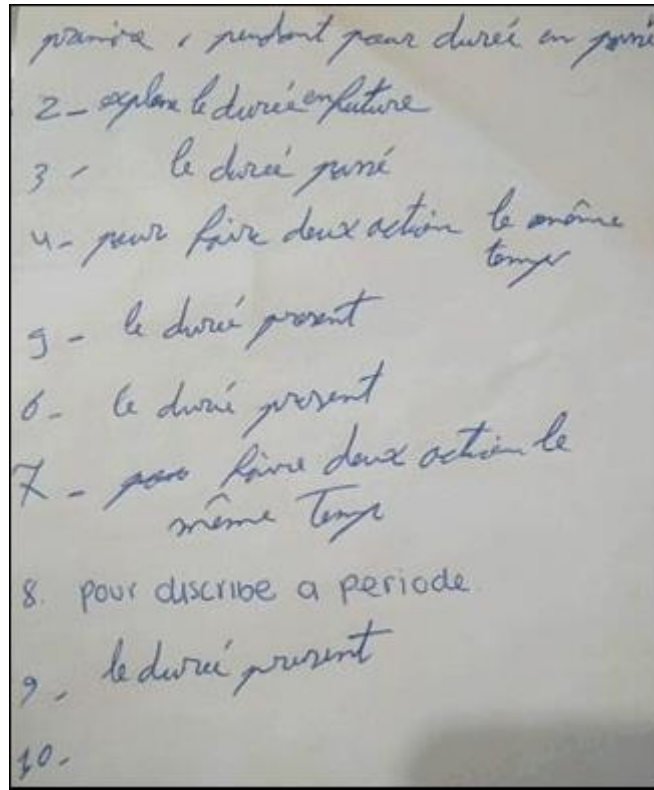 première, pendant pour dureé en passé
2- explane le dureé en future
3- le dureé passé
4- pour faire deux action le même
temps
5- le dureé present
6- le dureé present
7- pour faire deux action le
même Temps
8. pour discribe a periode
9, le dureé present
10-